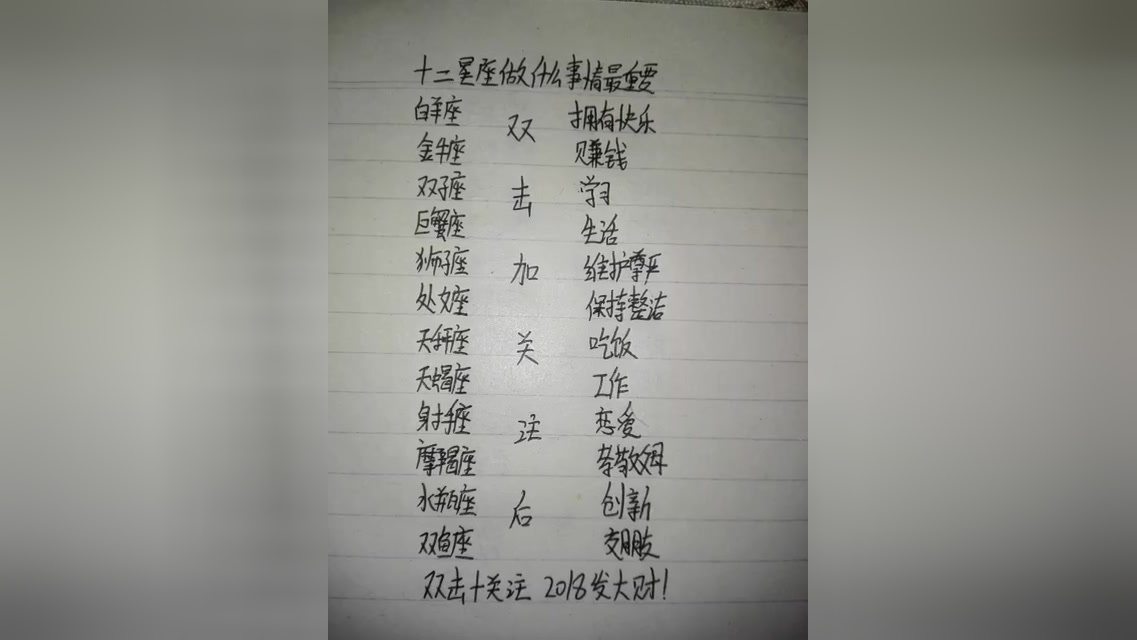 十二星座做什么事情最重要
白羊座 双 拥有快乐
金牛座 赚钱
双子座 击 学习
巨蟹座 生活
狮子座 加 维护尊严
处女座 保持整洁
天秤座 关 吃饭
天蝎座 工作
射手座 注 恋爱
摩羯座 孝敬父母
水瓶座 后 创新
双鱼座 交朋友
双击+关注 2018发大财!